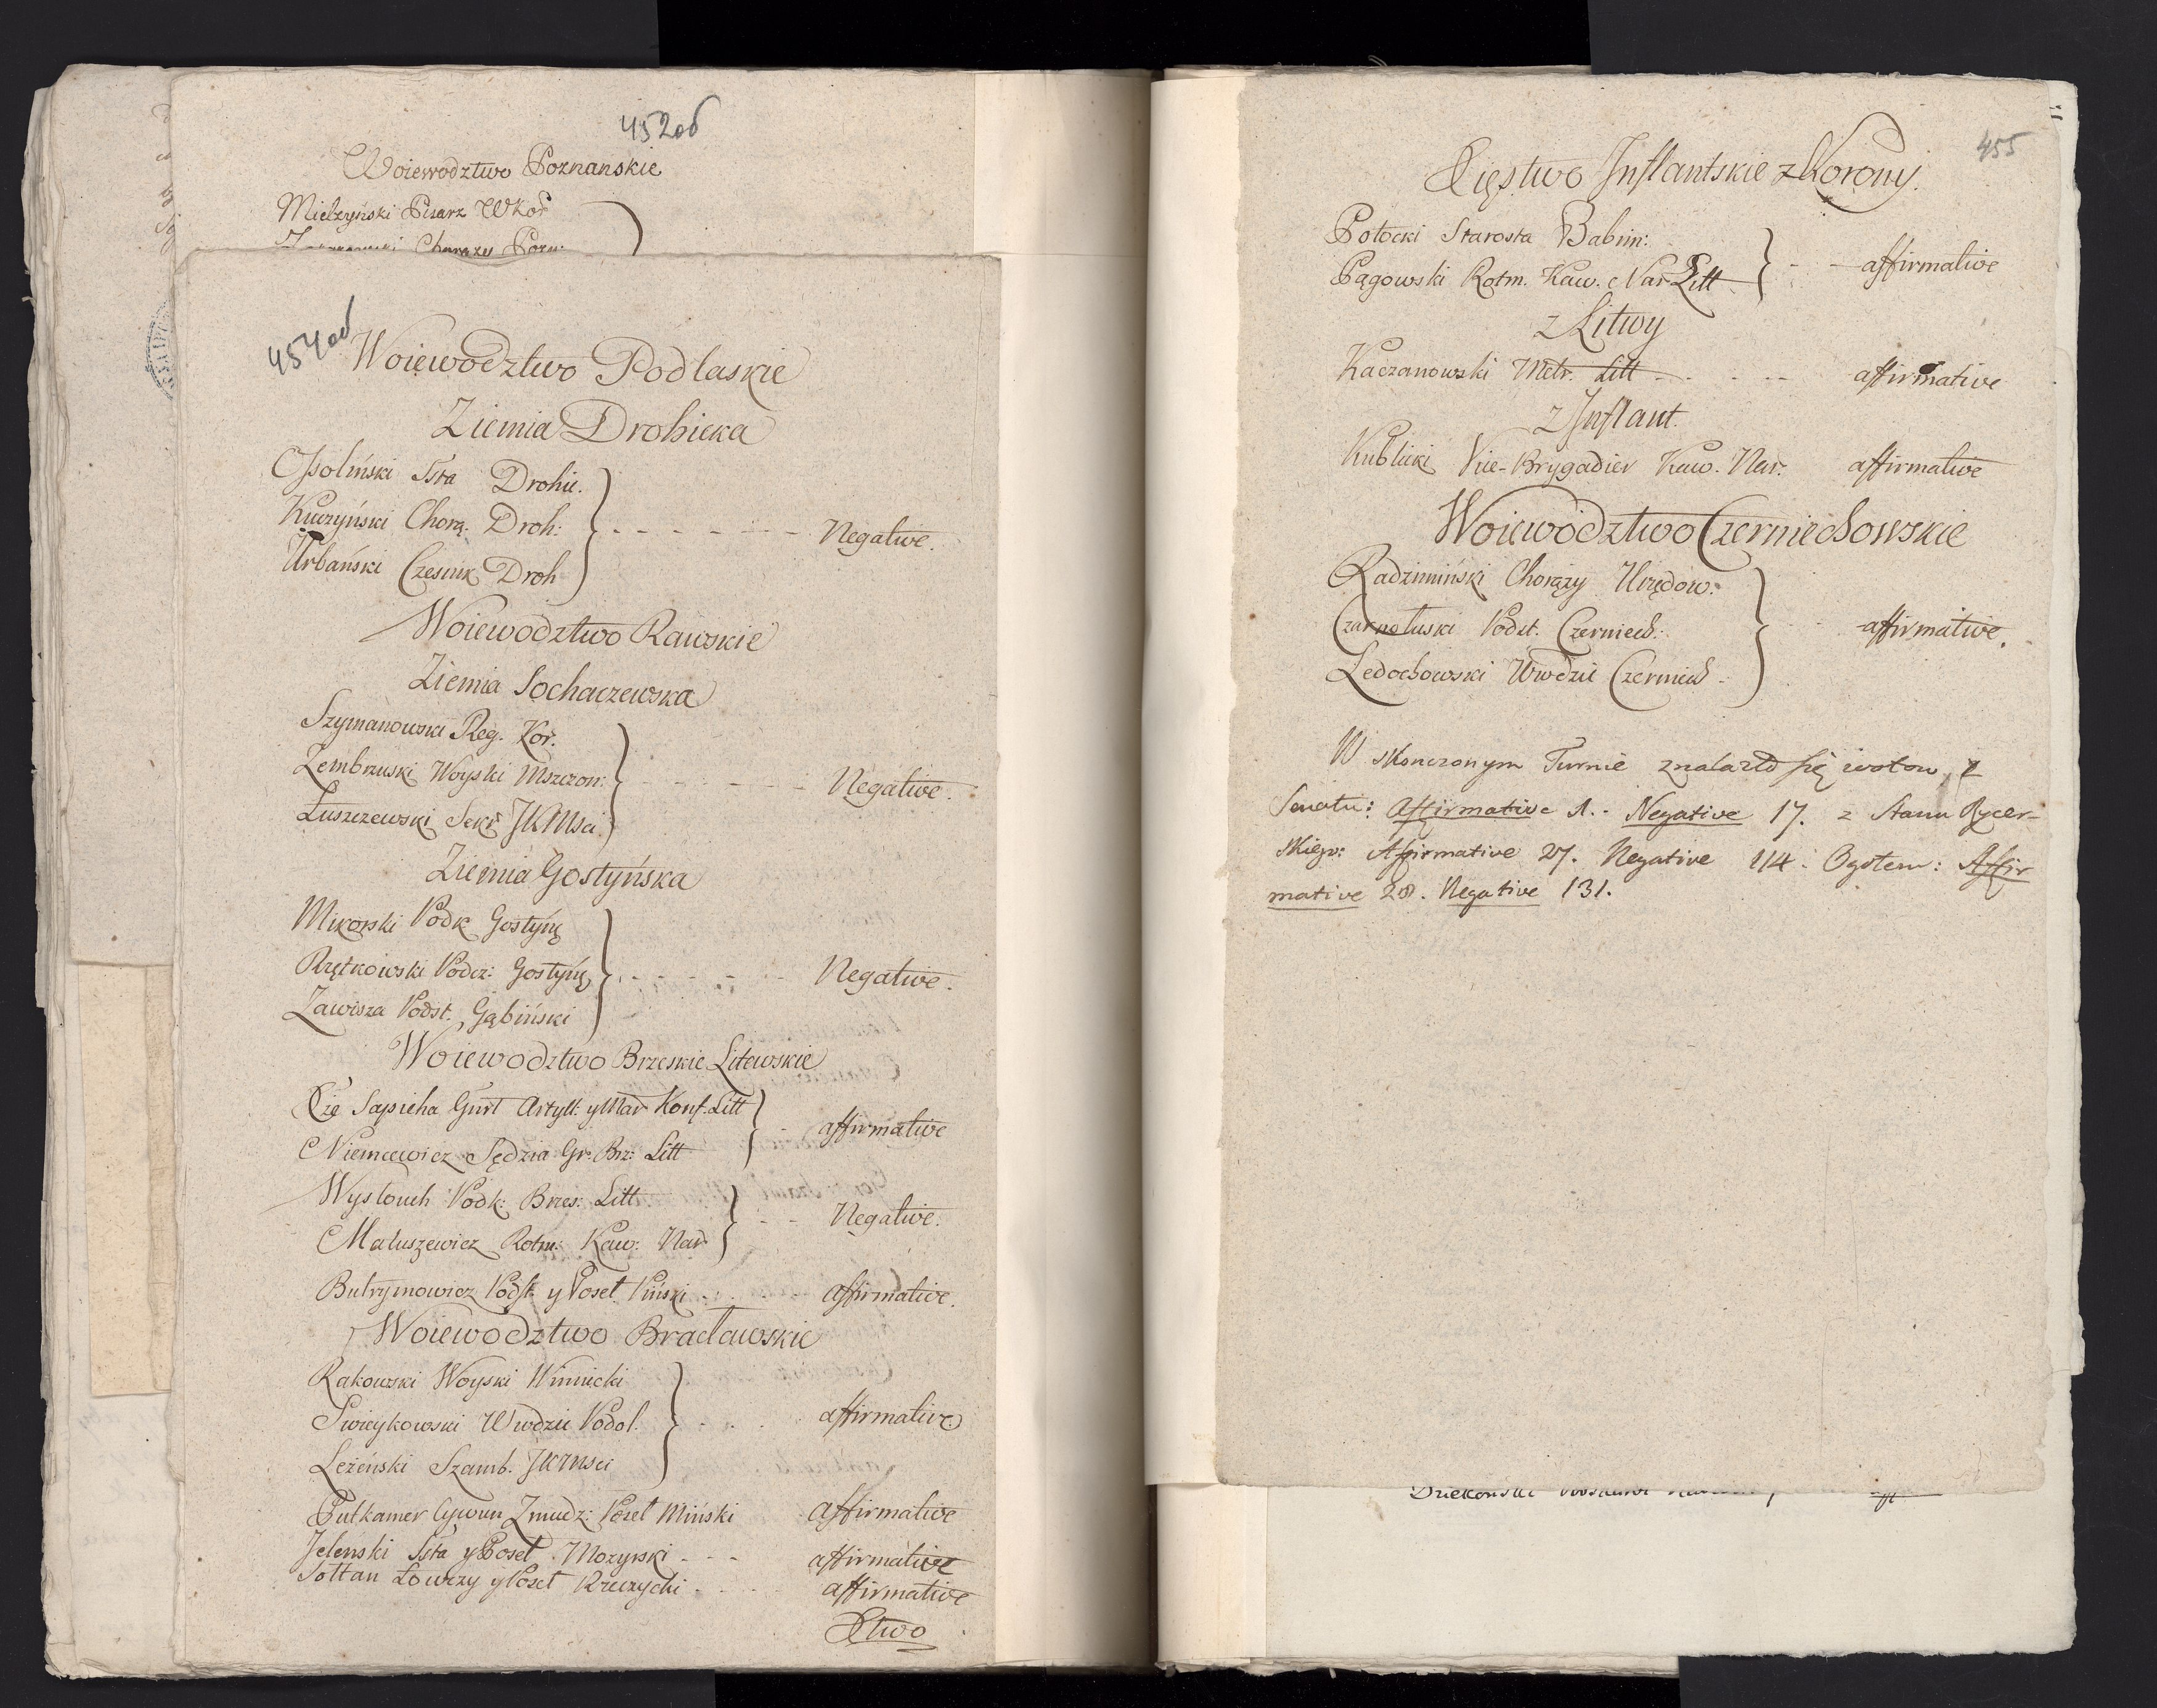 452об
Woiewodztwo Poznanskie
Mielzyński Pisarz WKoř
Chorązy Pozn:
454об
Woiewodztwo Podlaskie
Ziemia Drohicka
Ossoliński Ssta Drohic.
Kuczyński Chorą. Droh: - - - - - - Negative.
Urbański Czesnik Droh
Woiewodztwo Rawskie
Ziemia Sochaczewska
Szymanowski Reg. Koř.
Zembrzuski Woyski Mszczon: - - - - - Negative.
Łuszczewski Sekř JKMsci
Ziemia Gostyńska
Mikorski Podk Gostyń
Rzętkowski Podcz: Gostyń - - - - - - Negative.
Zawisza Podst. Gąbiński
Woiewodztwo Brzeskie Litewskie
Xże Sapieha Gnrł Artyll: y Mar Konf: Litt - affirmative
Niemcewicz Sędzia Gr: Brz: Litt
Wysłouch Podk: Brzes: Litt - - Negative.
Matuszewicz Rotm: Kaw: Nar
Butrymowicz Podst. y Poseł Piński . . . . affirmative.
Woiewodztwo Bracławskie
Rakowski Woyski Winnicki
Swieykowski Wwdzic Podol. - . . . affirmative
Leżeński Szamb. JKMsci
Putkamer Cywun Zmudz: Poseł Miński affirmative
Jelenski Ssta y Poseł Mozyrski - - - affirmative
Sołtan Łowczy y Poseł Rzeczycki - . . affirmative
Xtwo
455
Xięstwo Inflantskie z Korony.
Potocki Starosta Babim:
Pągowski Rotm. Kaw. Nar Litt - - affirmative
z Litwy
Kaczanowski Metr. Litt - . - . -- affirmative
z Inflant.
Kublicki Vice-Brygadier Kaw. Nar. affirmative
Woiewodztwo Czerniechowskie
Radzimiński Chorąży Urzędow:
Czarnołuski Podst. Czerniech: affirmative.
Ledochowski Wwdzic Czerniech -
W skonczonym Turnie znalazło się wotow, z
Senatu: Affirmative 1. - Negative 17. z Stanu Rycer-
skiego: Affirmative 27. Negative 114. Ogołem: Affir
mative 28. Negative 131.